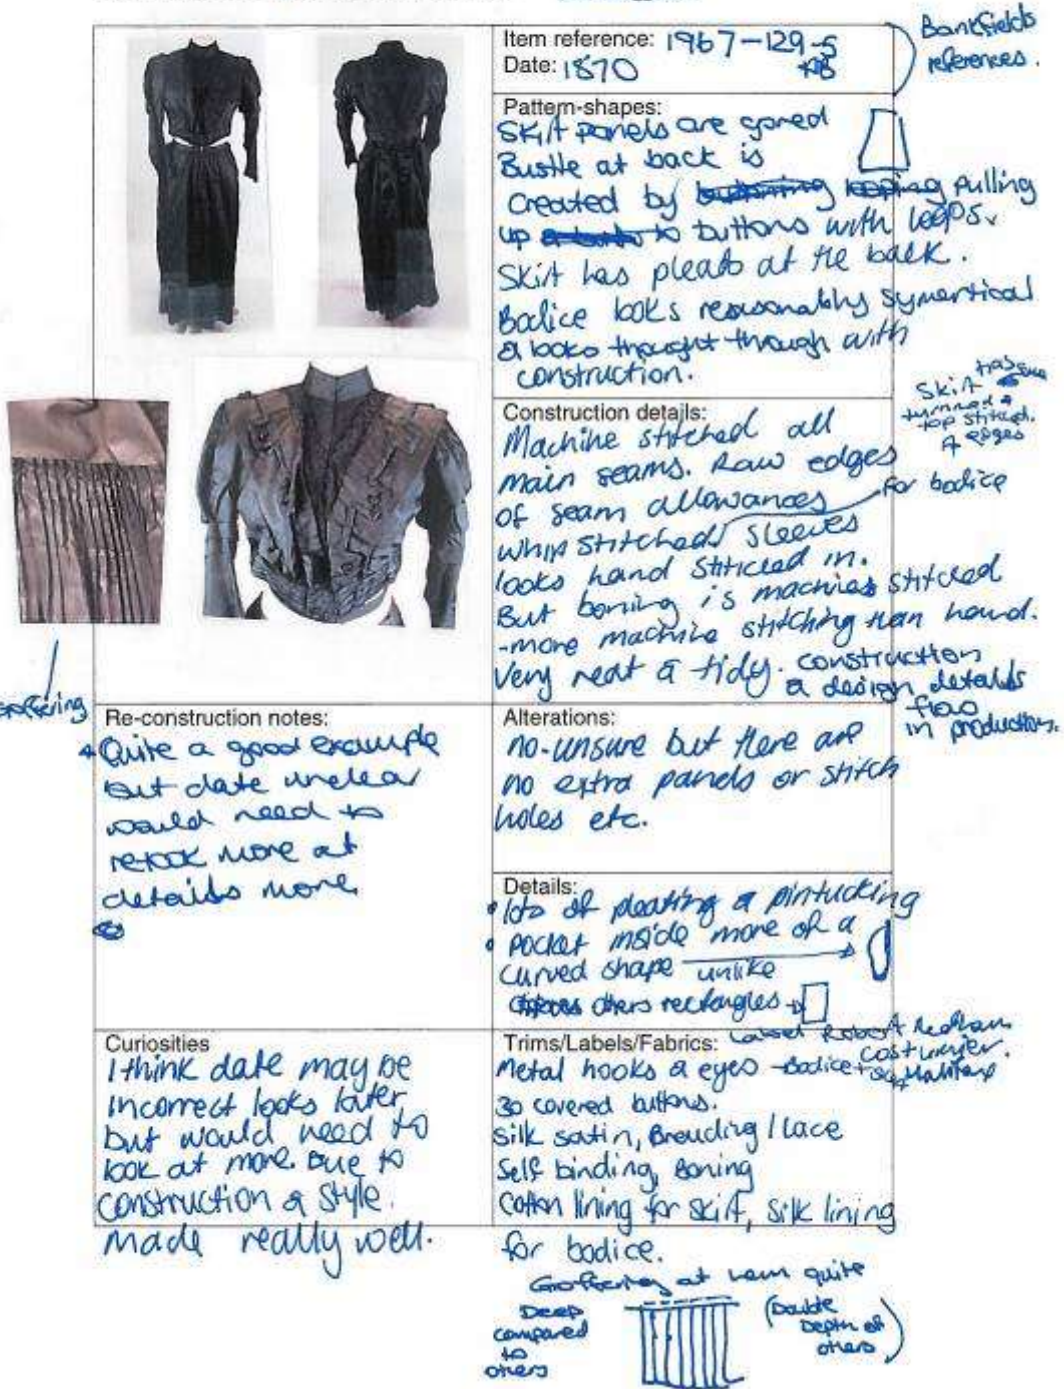 Item reference: 1967-129-5
Date: 1870
Bankfields
references.
Pattern-shapes:
Skirt panels are gored
Bustle at back is
created by pulling
up to buttons with loops.
Skirt has pleats at the back.
Bodice looks reasonably symertical
& looks thought through with
construction.
Construction details:
Machine stitched all
main seams. Raw edges
of seam allowances
for bodice
whip stitched sleeves
looks hand stitched in.
But boning is machine stitched
-more machine stitching than hand.
Very neat & tidy. construction
& design details
flow
in production.
Skirt has
turned &
top stitched.
edges
Goffering
Re-construction notes:
Quite a good example
but date unclear
would need to
relook more at
details more
Alterations:
no-unsure but there are
no extra panels or stitch
holes etc.
Details:
• lots of pleating & pintucking
• pocket inside more of a
curved shape unlike
others rectangles
Curiosities
I think date may be
incorrect looks later
but would need to
look at more. Due to
construction & style.
made really well.
Trims/Labels/Fabrics:
Label Robert
costumier.
Metal hooks & eyes - Bodice +
30 covered buttons.
Silk satin, Breuding / lace
Self binding, Boning
Cotton lining for skirt, silk lining
for bodice.
Goffering at hem quite
Deep
compared
to
others
(Double
Depth of
others)